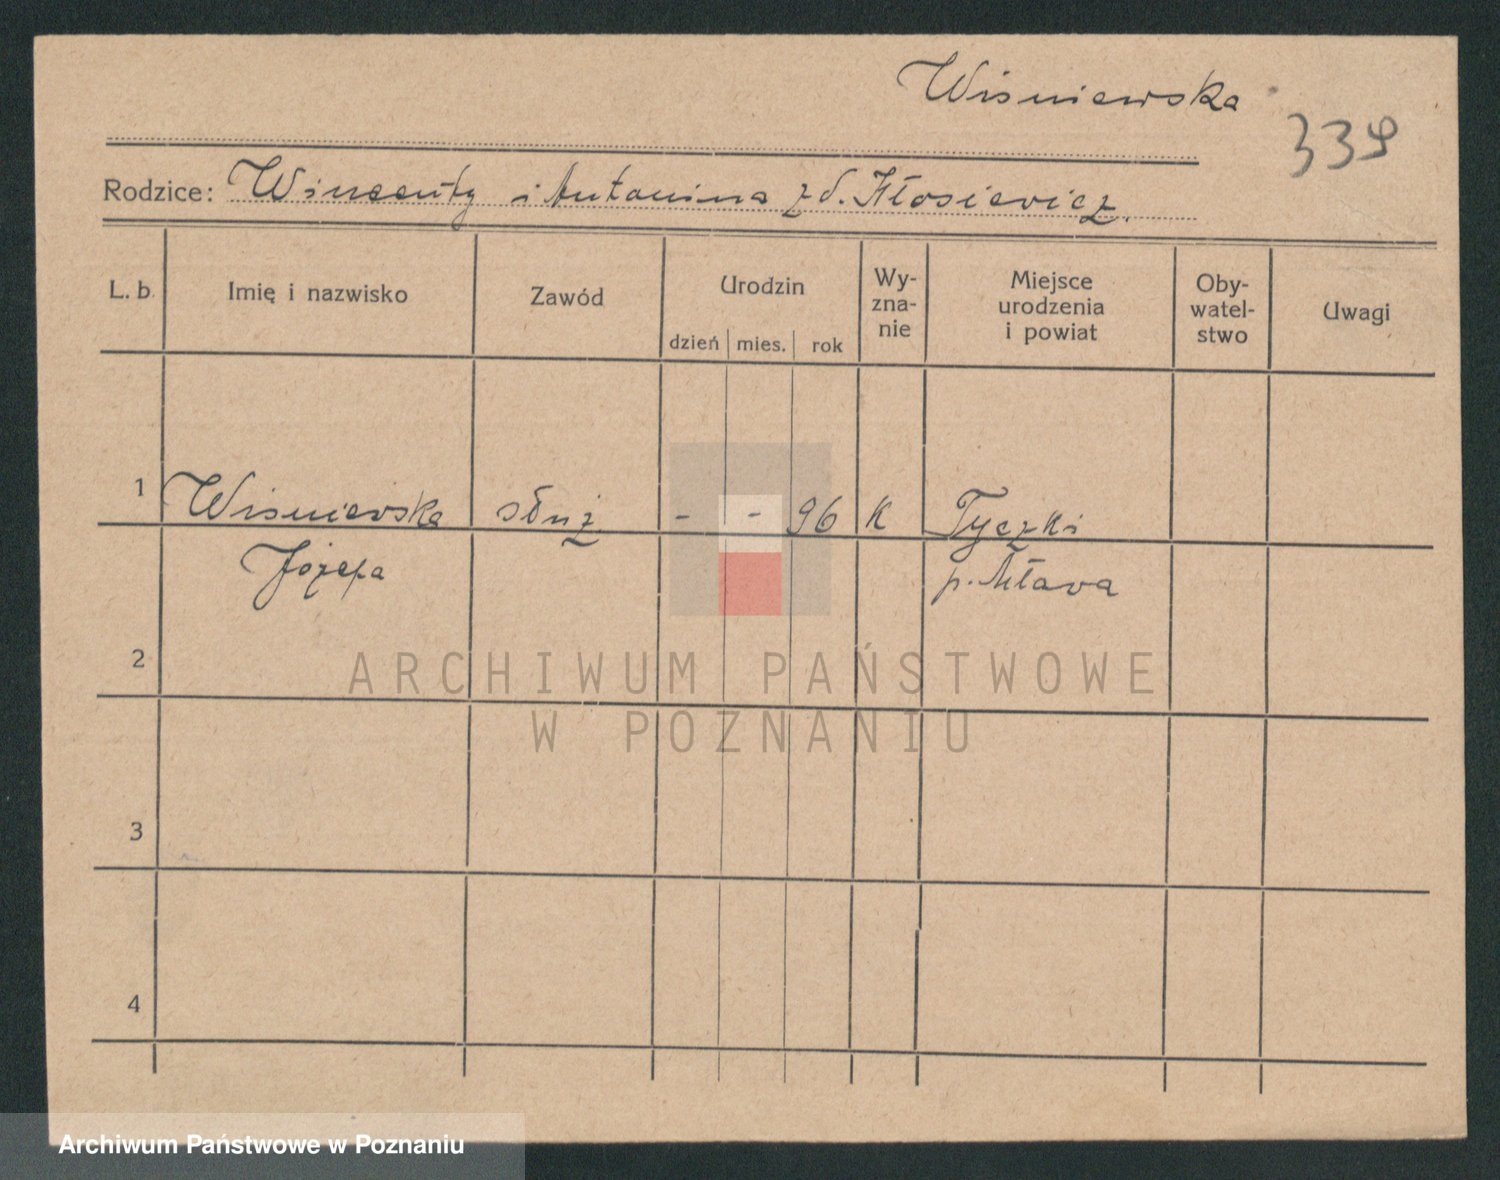 Wiśniewska
339
Rodzice: Wincenty i Antonina z d. Kłosiewicz.
L. b. Imię i nazwisko Zawód Urodzin Wy-zna-nie Miejsce urodzenia i powiat Oby-watel-stwo Uwagi
dzień mies. rok
1 Wiśniewska służ - - 96 K Tyczki
Józefa p. Mława
2
ARCHIWUM PAŃSTWOWE
W POZNANIU
3
4
Archiwum Państwowe w Poznaniu